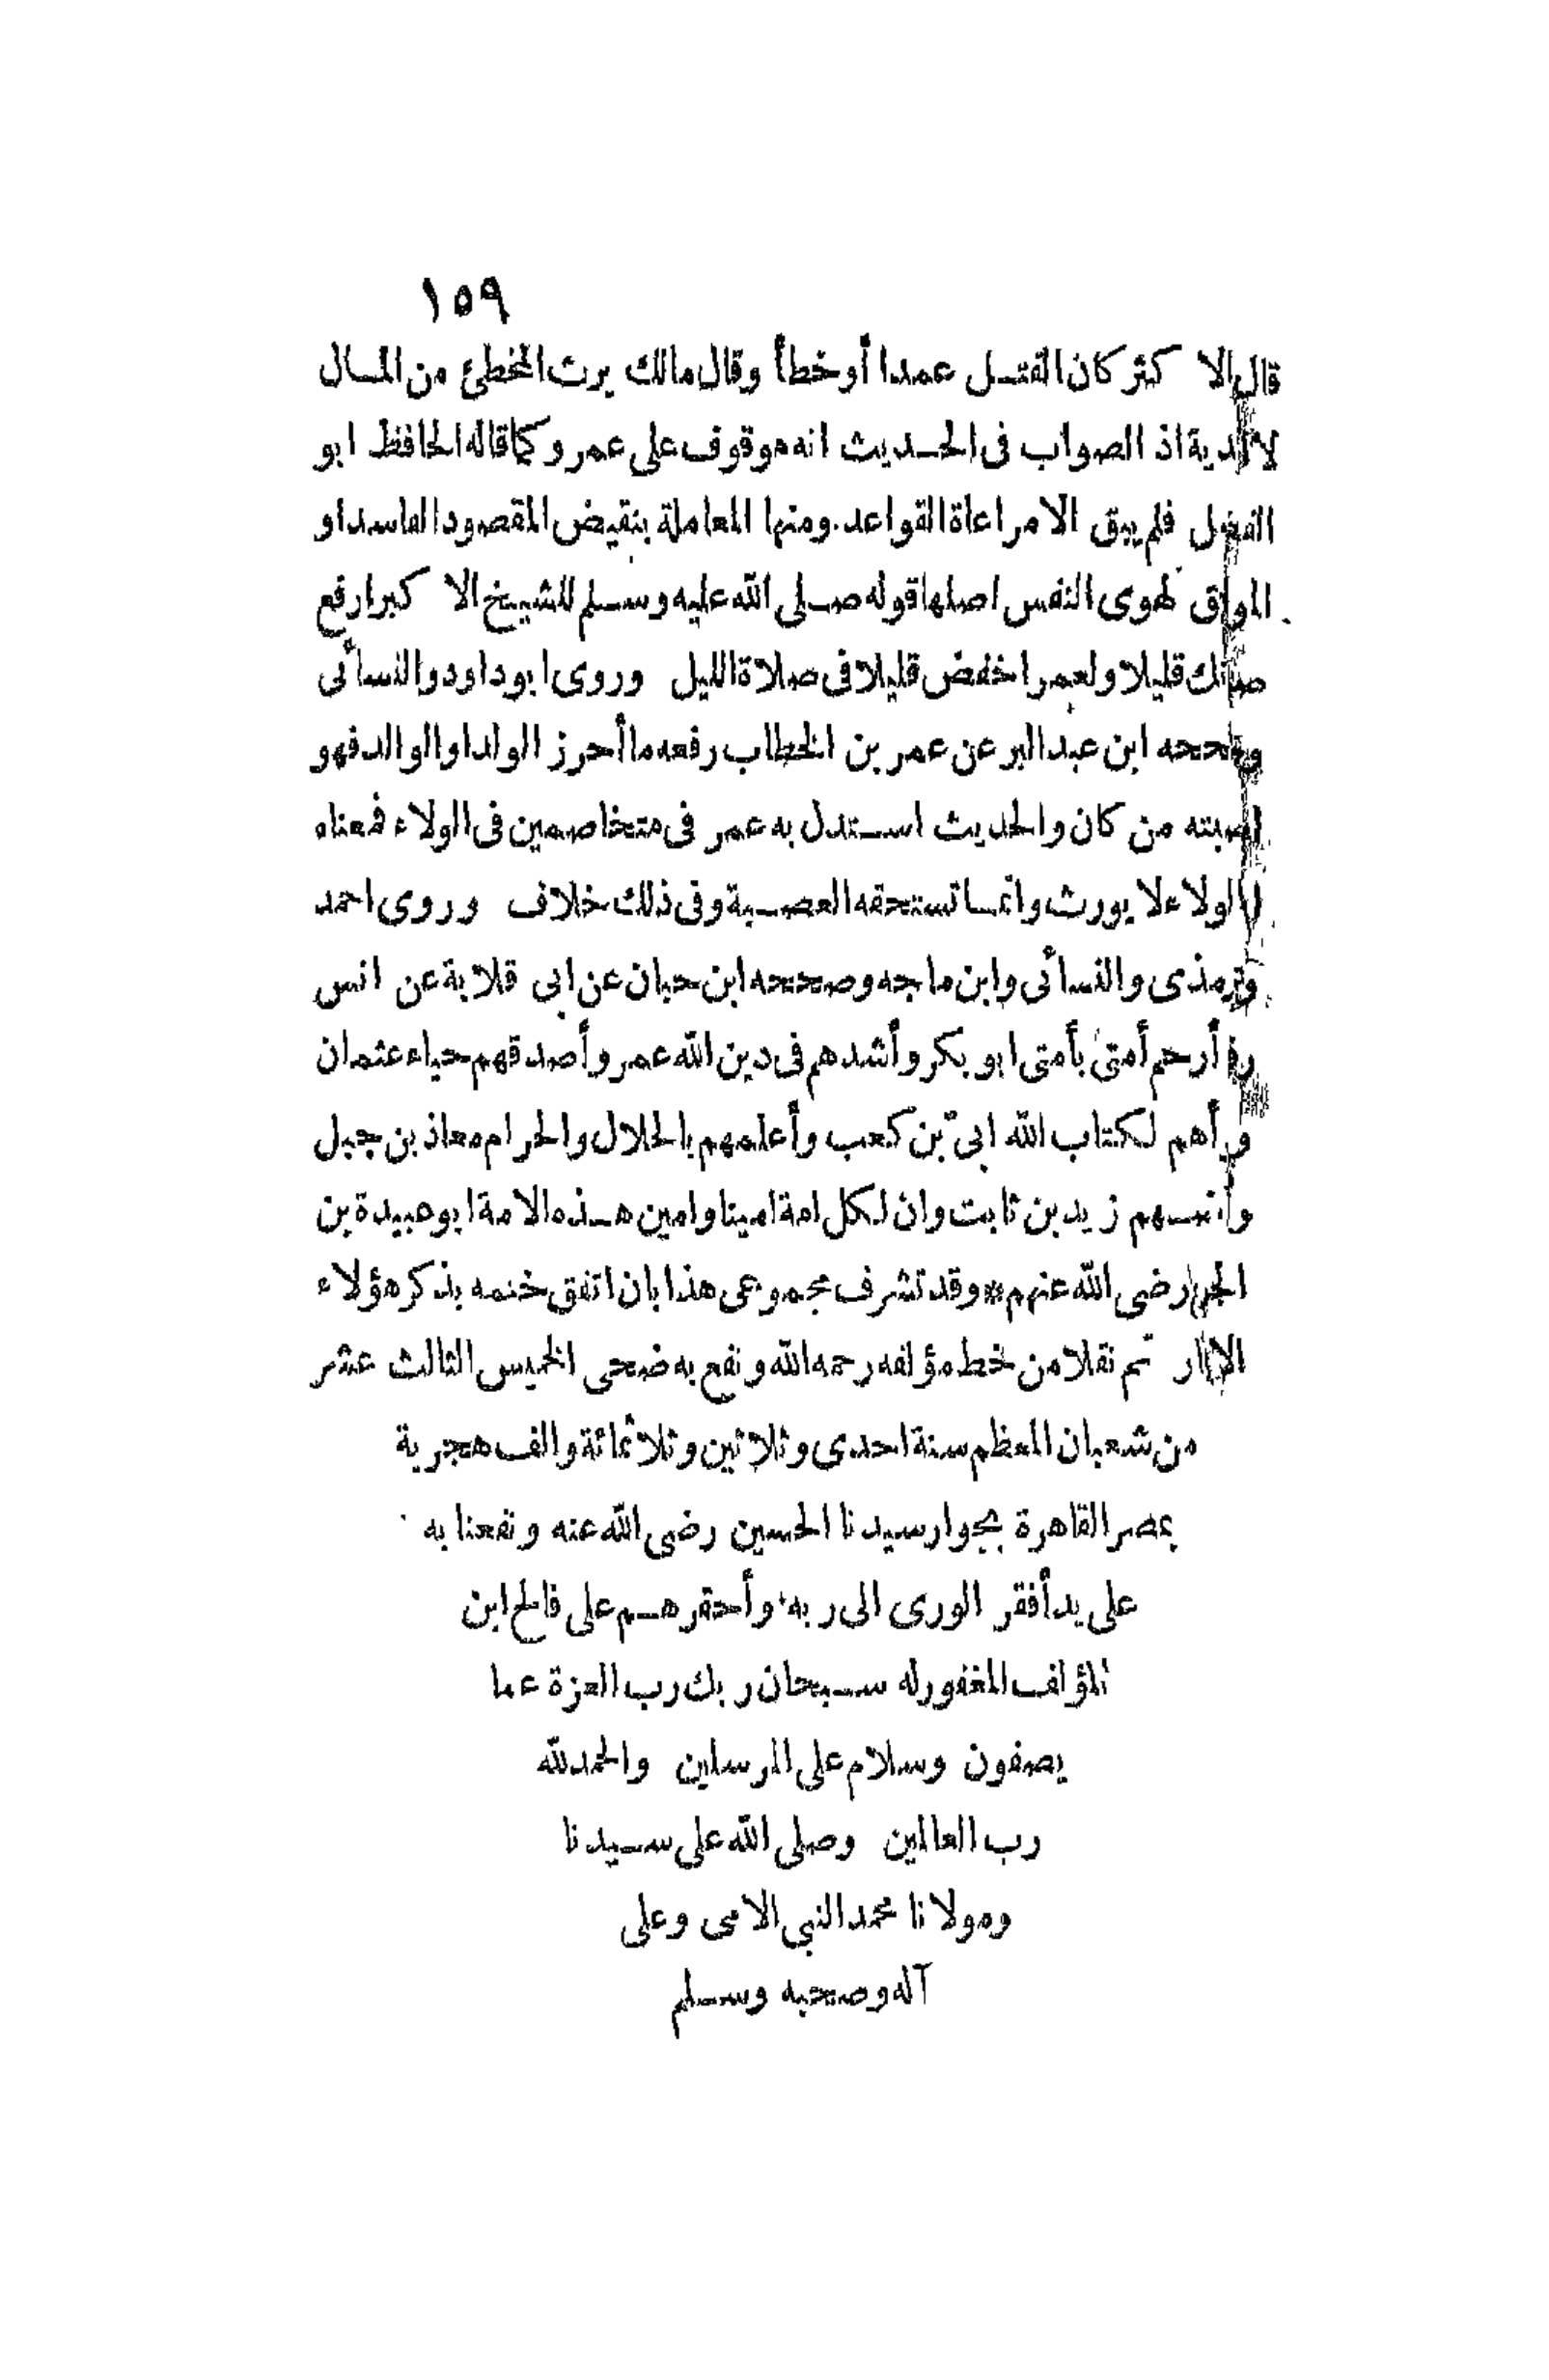 ١٥٩
قال الاكثر كان القتل عمدا أو خطأ وقال مالك يرث المخطئ من المال
لا الدية اذ الصواب فى الحديث انه موقوف على عمرو كما قاله الحافظ ابو
الفضل فلم يبق الا مراعاة القواعد. ومنها المعاملة بنقيض المقصود الفاسد او
الموافق لهوى النفس اصلها قوله صلى الله عليه وسلم للشيخ الاكبر ارفع
صوتك قليلا ولعمر اخفض قليلا فى صلاة الليل وروى ابو داود والنسائى
وصححه ابن عبد البر عن عمر بن الخطاب رفعه ما أحرز الولد او الوالد فهو
لعصبته من كان والحديث استدل به عمر فى متخاصمين فى الولاء فمعناه
الولاء لا يورث وانما تستحقه العصبة وفى ذلك خلاف وروى احمد
والترمذى والنسائى وابن ماجه وصححه ابن حبان عن ابى قلابة عن انس
أرحم أمتى بأمتى ابو بكر وأشدهم فى دين الله عمر وأصدقهم حياء عثمان
وأقرأهم لكتاب الله ابىّ بن كعب وأعلمهم بالحلال والحرام معاذ بن جبل
وأفرضهم زيد بن ثابت وان لكل امة امينا وامين هذه الامة ابو عبيدة بن
الجراح رضى الله عنهم * وقد تشرف مجموعى هذا بان اتفق ختمه بذكر هؤلاء
تم نقلا من خط مؤلفه رحمه الله ونفع به ضحى الخميس الثالث عشر
من شعبان المعظم سنة احدى وثلاثين وثلاثمائة والف هجرية
بمصر القاهرة بجوار سيدنا الحسين رضى الله عنه ونفعنا به
على يد أفقر الورى الى ربه وأحقرهم على فالح ابن
المؤلف المغفور له سبحان ربك رب العزة عما
يصفون وسلام على المرسلين والحمد لله
رب العالمين وصلى الله على سيدنا
ومولانا محمد النبى الامى وعلى
آله وصحبه وسلم